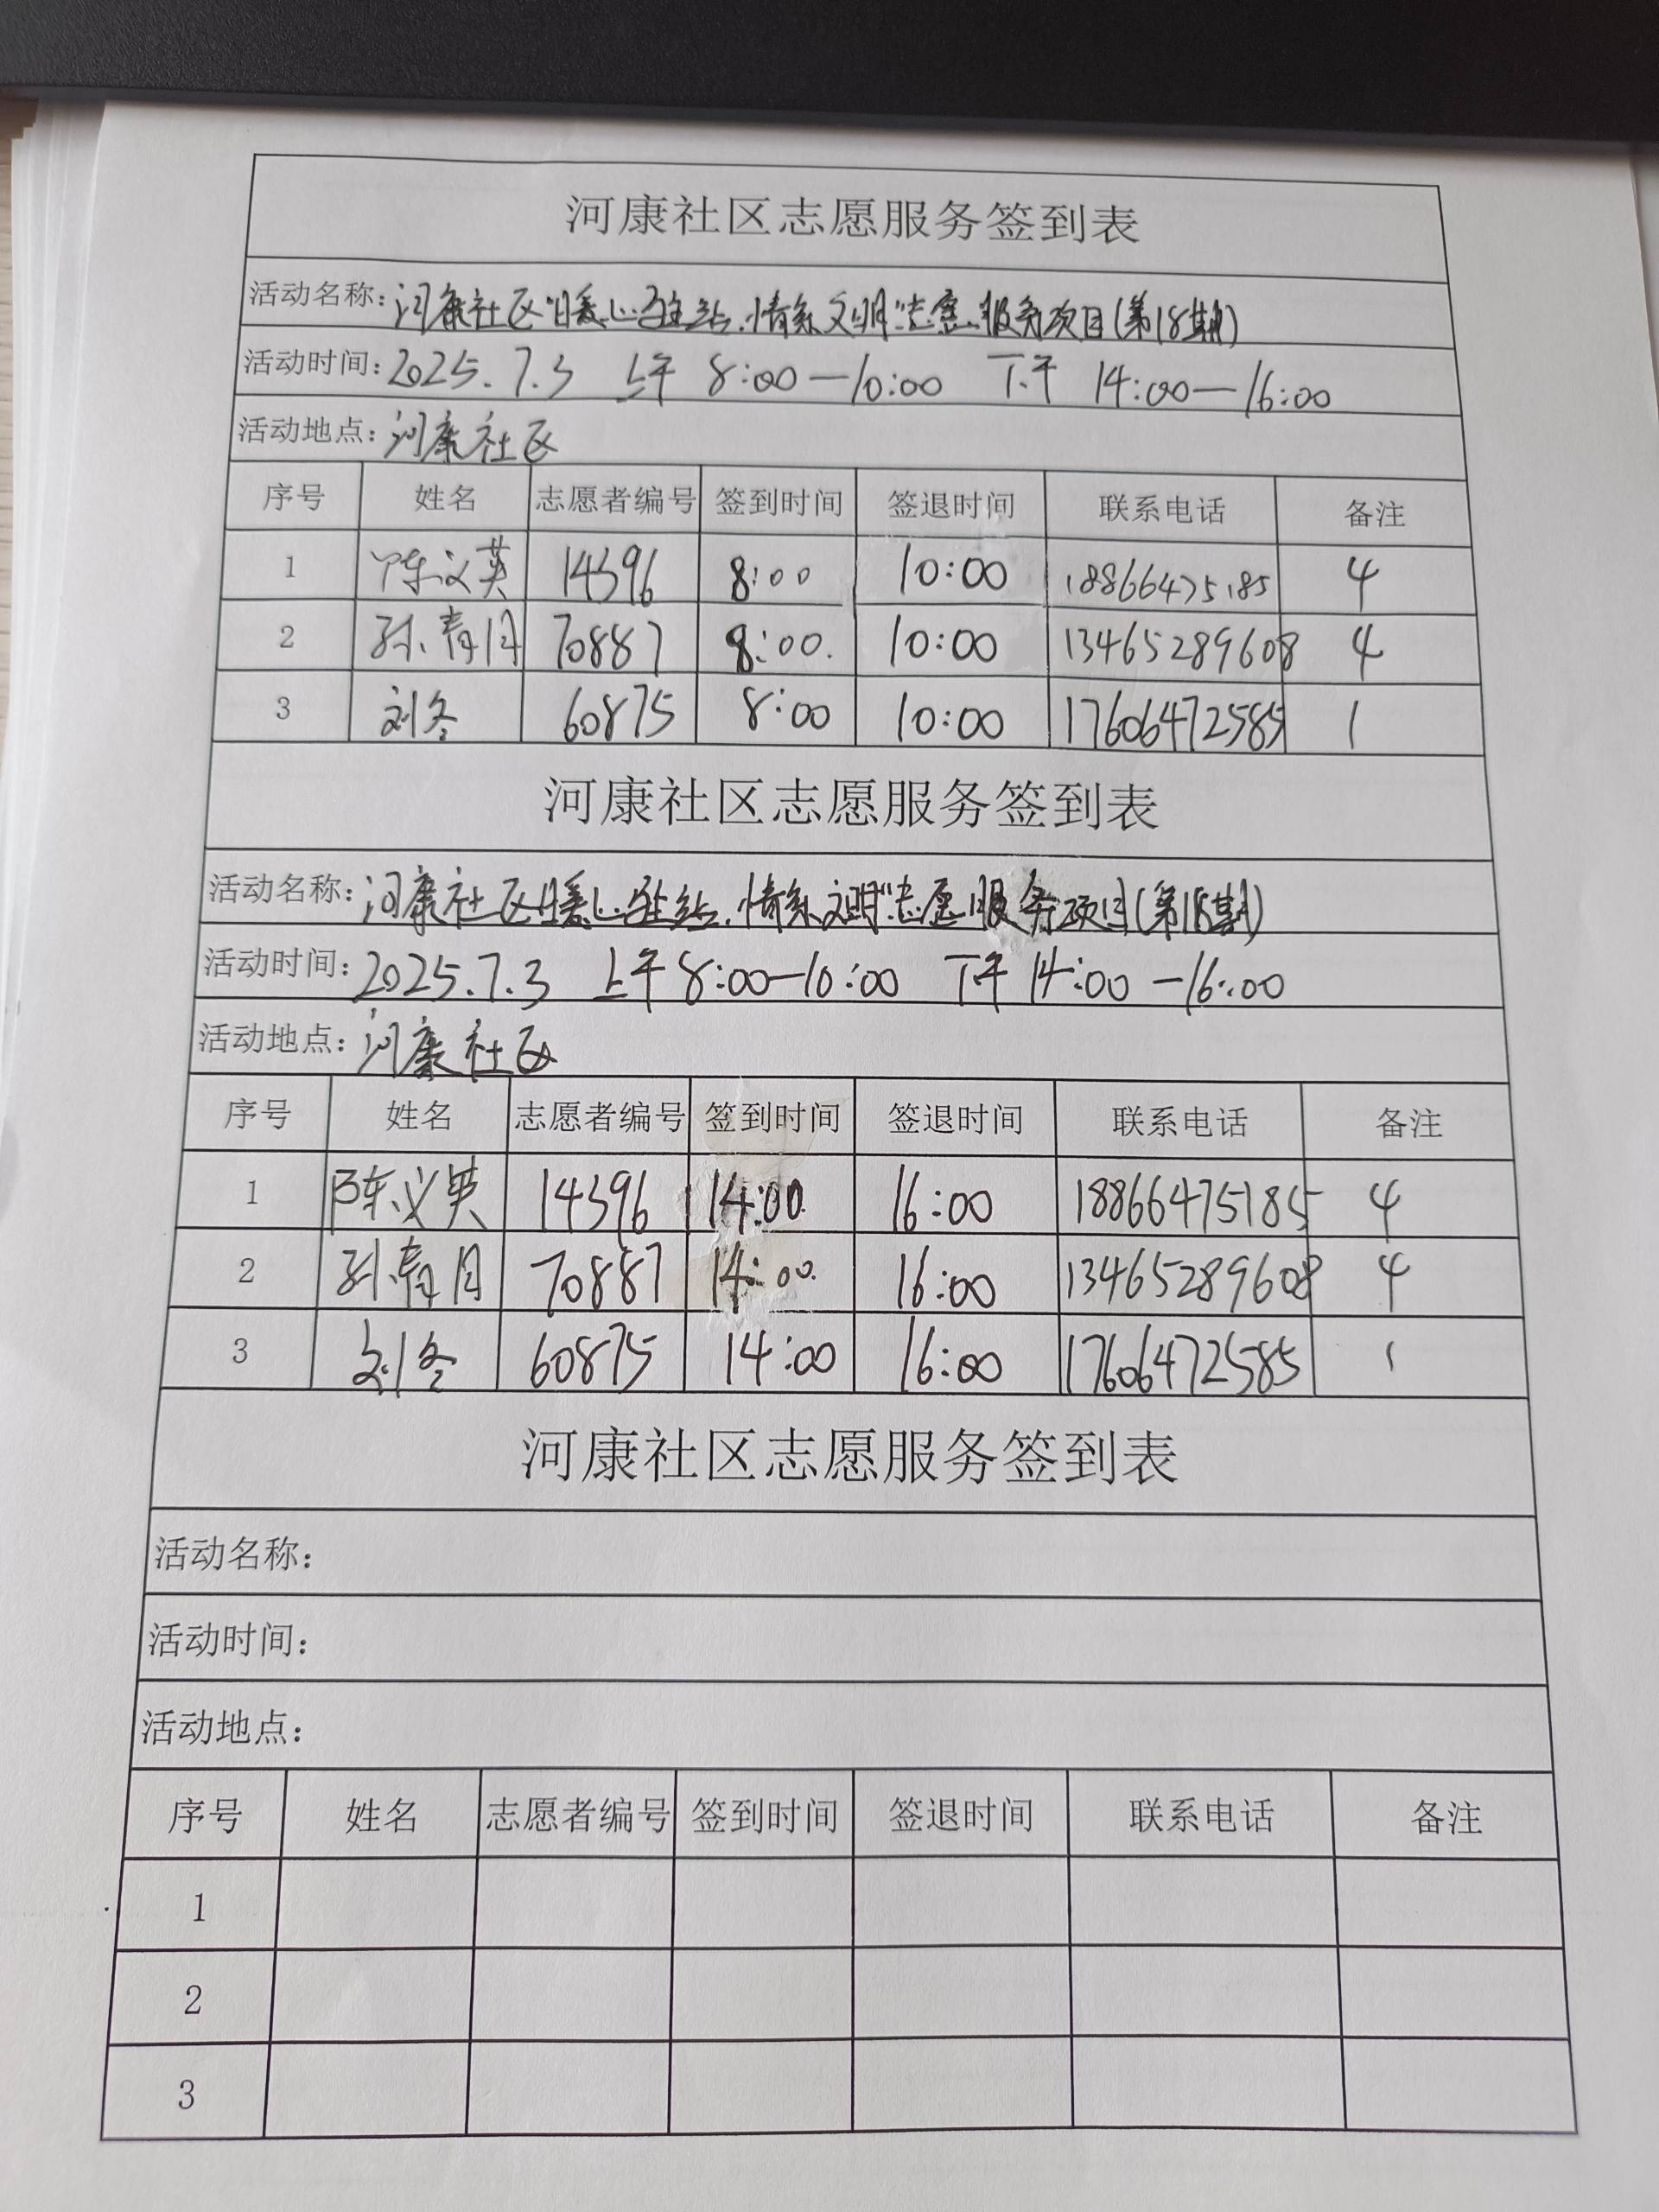 河康社区志愿服务签到表
活动名称：河康社区"暖心驿站，情系文明"志愿服务项目(第18期)
活动时间：2025.7.3 上午 8:00—10:00 下午 14:00—16:00
活动地点：河康社区
序号 姓名 志愿者编号 签到时间 签退时间 联系电话 备注
1 陈义英 14396 8:00 10:00 18866475185 4
2 孙青月 70887 8:00. 10:00 13465289608 4
3 刘冬 60875 8:00 10:00 17606472585 1
河康社区志愿服务签到表
活动名称：河康社区"暖心驿站，情系文明"志愿服务项目(第18期)
活动时间：2025.7.3 上午 8:00—10:00 下午 14:00—16:00
活动地点：河康社区
序号 姓名 志愿者编号 签到时间 签退时间 联系电话 备注
1 陈义英 14396 14:00. 16:00 18866475185 4
2 孙青月 70887 14:00. 16:00 13465289608 4
3 刘冬 60875 14:00 16:00 17606472585 1
河康社区志愿服务签到表
活动名称：
活动时间：
活动地点：
序号 姓名 志愿者编号 签到时间 签退时间 联系电话 备注
1
2
3